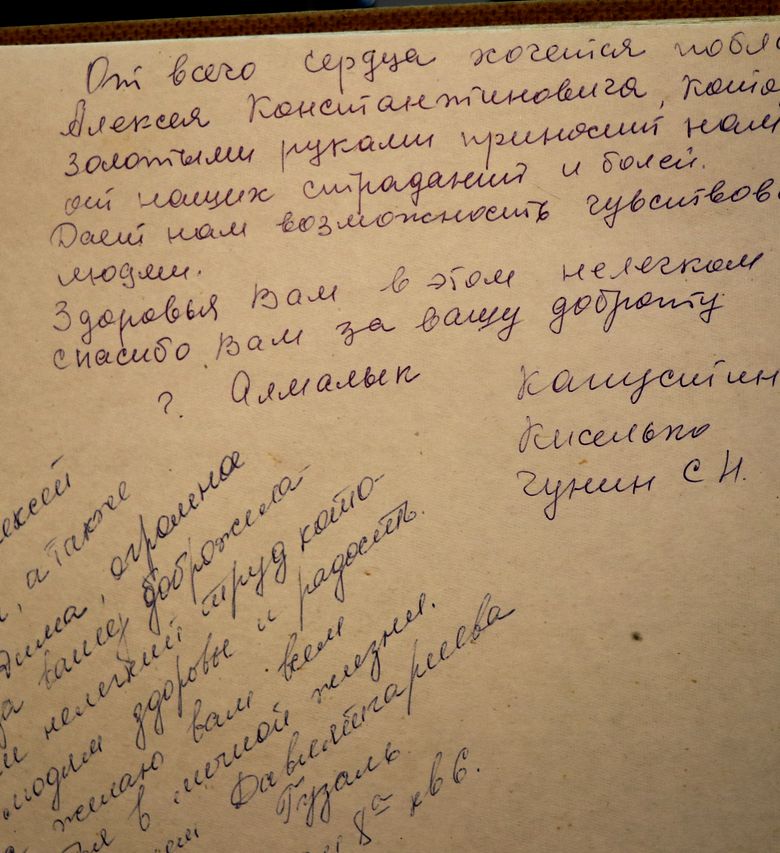 От всего сердца хочется побла
Алексея Константиновича, кото
золотыми руками приносит нам
от наших страданий и болей.
Дает нам возможность чувствова
людми.
Здоровья Вам в этом нелегком
спасибо Вам за вашу доброту
г. Алмалык
Капустин
Киселько
Чунин С Н.
ексей
, а также
Дима, огромное
за вашу доброжела-
нелегкий труд кото-
людям здоровье и радость.
желаю вам всем
в личной жизни.
Давлетгареева
Гузаль
8а кв 6.